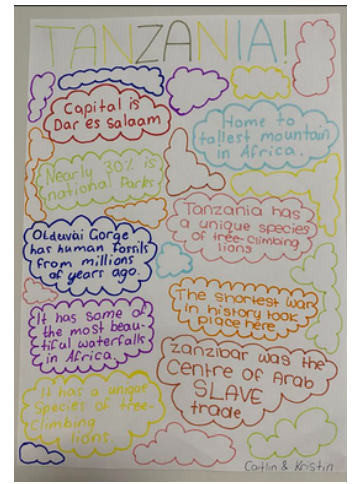 TANZANIA!
Capital is
Dar es salaam
Home to
tallest mountain
in Africa.
Nearly 30% is
national Parks
Tanzania has
a unique species
of tree-climbing
lions
Olduvai Gorge
has human fossils
from millions
of years ago.
The shortest war
in history took
place here
It has some of
the most beau-
tiful waterfalls
in Africa.
Zanzibar was the
Centre of Arab
SLAVE
trade
It has a unique
Species of tree-
Climbing
lions.
Caitlin & Kristin